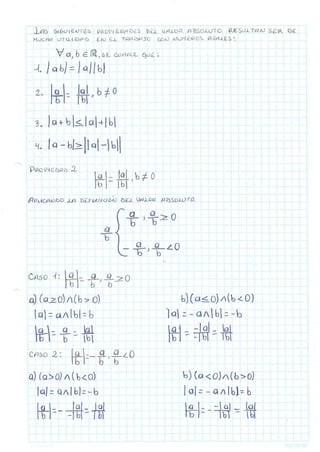 LAS SIGUIENTES PROPIEDADES DEL VALOR ABSOLUTO RESULTAN SER DE
MUCHA UTILIDAD EN EL TRABAJO CON NUMEROS REALES:
∀ a, b ∈ ℝ, SE CUMPLE QUE:
1. |ab| = |a||b|
2. |a/b| = |a|/|b|, b ≠ 0
3. |a+b| ≤ |a|+|b|
4. |a-b| ≥ ||a|-|b||
PROPIEDAD 2
|a/b| = |a|/|b|, b ≠ 0
APLICANDO LA DEFINICIÓN DEL VALOR ABSOLUTO
a/b { a/b, a/b ≥ 0
-a/b, a/b < 0
CASO 1: |a/b| = a/b, a/b ≥ 0
a) (a≥0)∧(b>0) b) (a≤0)∧(b<0)
|a| = a∧|b| = b |a| = -a∧|b| = -b
|a/b| = a/b = |a|/|b| |a/b| = -|a|/-|b| = |a|/|b|
CASO 2: |a/b| = -a/b, a/b < 0
a) (a>0)∧(b<0) b) (a<0)∧(b>0)
|a| = a∧|b| = -b |a| = -a∧|b| = b
|a/b| = - |a|/-|b| = |a|/|b| |a/b| = - -|a|/|b| = |a|/|b|